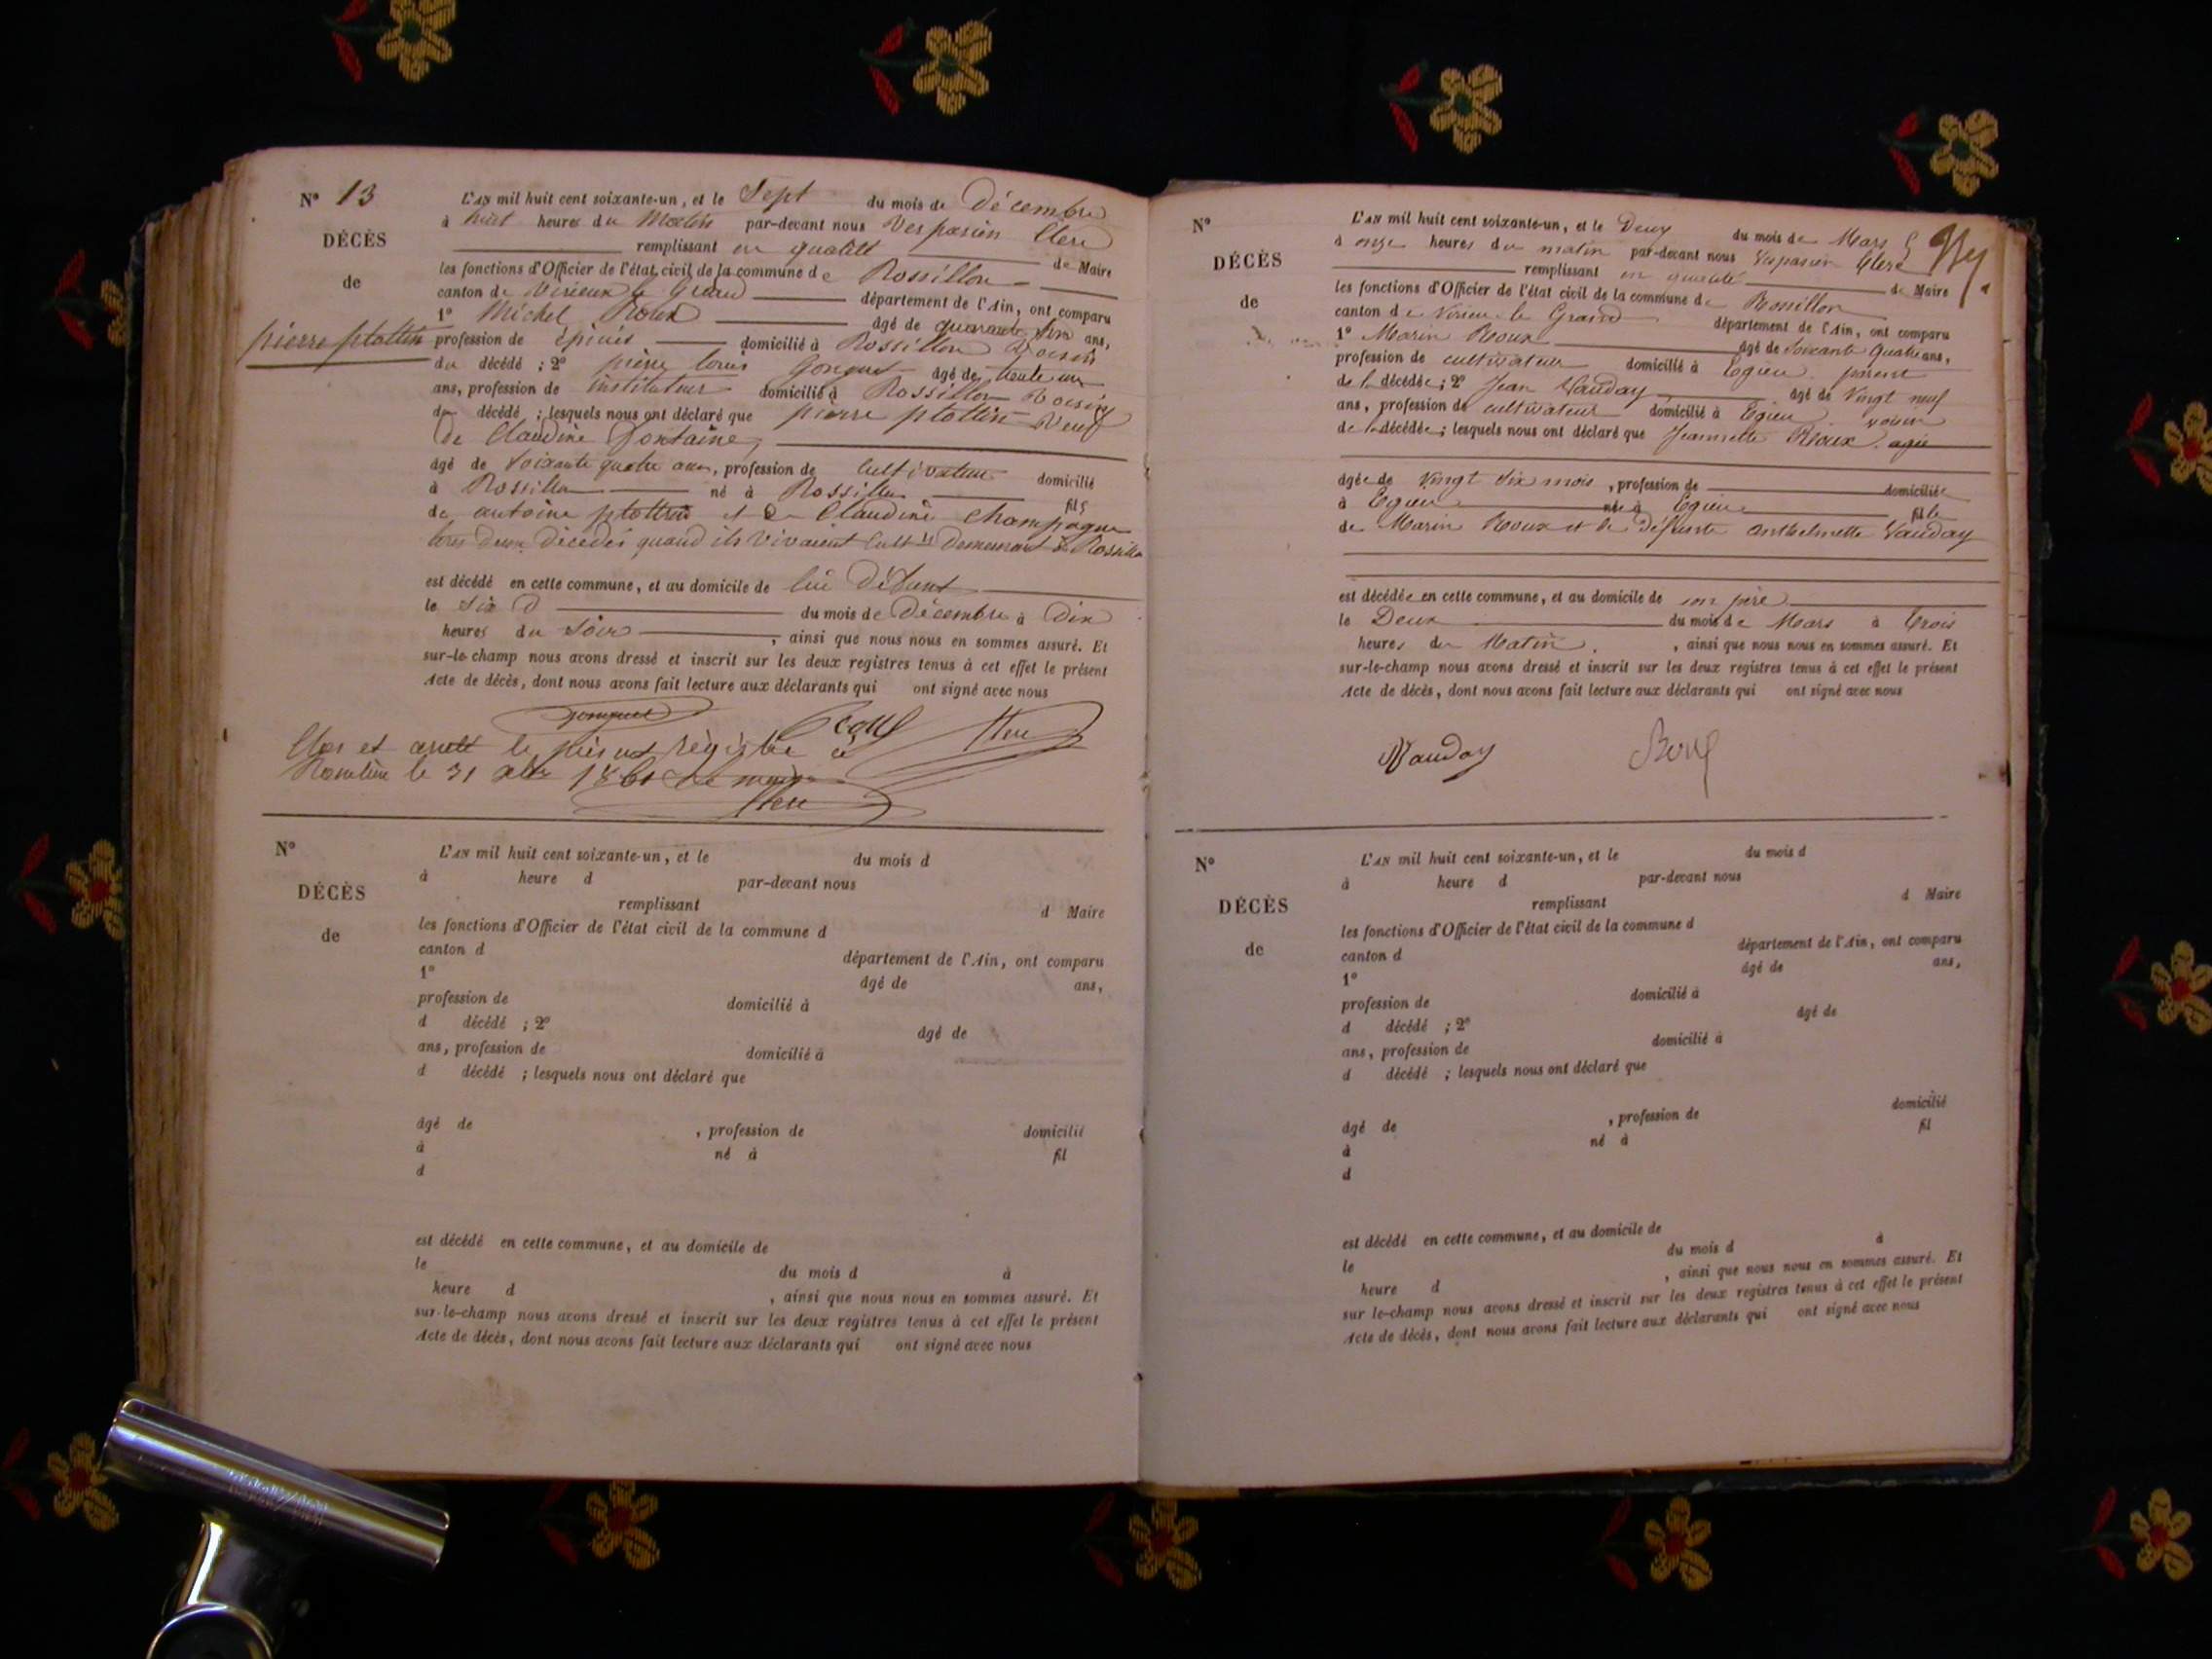 N° 13
DÉCÈS
de
pierre plottin
L'AN mil huit cent soixante-un, et le Sept du mois de Décembre
à huit heures du Matin par-devant nous Vespasien Clerc
remplissant en qualité de Maire
les fonctions d'Officier de l'état civil de la commune de Rossillon
canton de Virieux le Grand département de l'Ain, ont comparu
1° Michel Roux âgé de quarante ans,
profession de épicier domicilié à Rossillon Voisin
du décédé ; 2° pierre louis Gonguet âgé de trente un
ans, profession de instituteur domicilié à Rossillon Voisin
du décédé ; lesquels nous ont déclaré que pierre plottin Veuf
de Claudine Fontaine,
âgé de Soixante quatre ans, profession de Cultivateur domicilié
à Rossillon né à Rossillon fils
de antoine plottin et de Claudine Champagne
tous deux décédés quand ils vivaient cult demeurant à Rossillon
est décédé en cette commune, et au domicile de lui Défunt
le Six du mois de Décembre à Dix
heures du Soir , ainsi que nous nous en sommes assuré. Et
sur-le-champ nous avons dressé et inscrit sur les deux registres tenus à cet effet le présent
Acte de décès, dont nous avons fait lecture aux déclarants qui ont signé avec nous
Clos et arrêté le présent régistre à
Rossillon le 31 Xbre 1861 le maire
N°
DÉCÈS
de
L'AN mil huit cent soixante-un, et le du mois d
à heure d par-devant nous
remplissant d Maire
les fonctions d'Officier de l'état civil de la commune d
canton d département de l'Ain, ont comparu
1° âgé de ans,
profession de domicilié à
d décédé ; 2° âgé de
ans, profession de domicilié à
d décédé ; lesquels nous ont déclaré que
âgé de , profession de domicilié
à né à fil
d
est décédé en cette commune, et au domicile de
le du mois d à
heure d , ainsi que nous nous en sommes assuré. Et
sur-le-champ nous avons dressé et inscrit sur les deux registres tenus à cet effet le présent
Acte de décès, dont nous avons fait lecture aux déclarants qui ont signé avec nous
N°
DÉCÈS
de
L'AN mil huit cent soixante-un, et le Deux du mois de Mars
à onze heures du matin par-devant nous Vespasien Clerc
remplissant en qualité de Maire
les fonctions d'Officier de l'état civil de la commune de Rossillon
canton de Virieu le Grand département de l'Ain, ont comparu
1° Marin Roux âgé de Soixante Quatre ans,
profession de cultivateur domicilié à Egieu parent
de la décédée ; 2° Jean Vauday âgé de Vingt neuf
ans, profession de cultivateur domicilié à Egieu voisin
de la décédée ; lesquels nous ont déclaré que Jeannette Roux agée
âgée de Vingt Six mois , profession de domiciliée
à Egieu née à Egieu fille
de Marin Roux et de Défunte Anthelmette Vauday
est décédée en cette commune, et au domicile de son père
le Deux du mois de Mars à Trois
heures du Matin , ainsi que nous nous en sommes assuré. Et
sur-le-champ nous avons dressé et inscrit sur les deux registres tenus à cet effet le présent
Acte de décès, dont nous avons fait lecture aux déclarants qui ont signé avec nous
Vauday
N°
DÉCÈS
de
L'AN mil huit cent soixante-un, et le du mois d
à heure d par-devant nous
remplissant d Maire
les fonctions d'Officier de l'état civil de la commune d
canton d département de l'Ain, ont comparu
1° âgé de ans,
profession de domicilié à
d décédé ; 2° âgé de
ans, profession de domicilié à
d décédé ; lesquels nous ont déclaré que
âgé de , profession de domicilié
à né à fil
d
est décédé en cette commune, et au domicile de
le du mois d à
heure d , ainsi que nous nous en sommes assuré. Et
sur le-champ nous avons dressé et inscrit sur les deux registres tenus à cet effet le présent
Acte de décès, dont nous avons fait lecture aux déclarants qui ont signé avec nous